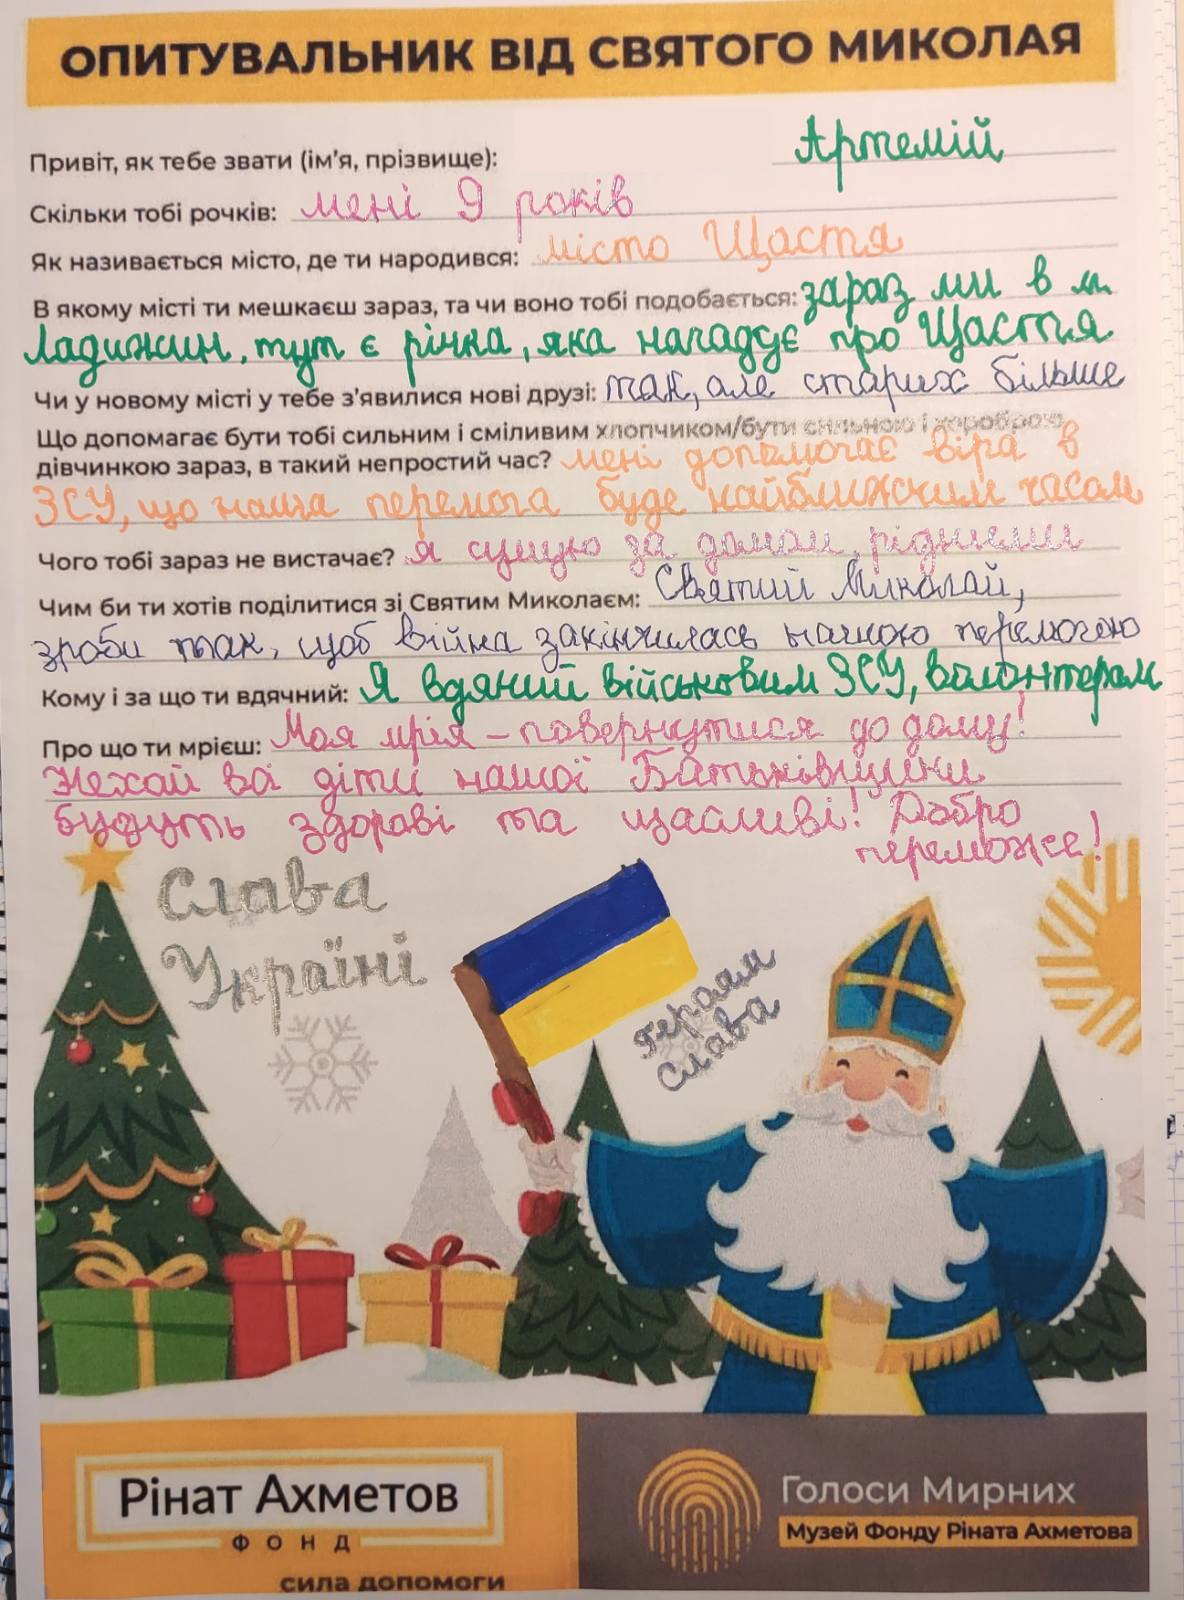 ОПИТУВАЛЬНИК ВІД СВЯТОГО МИКОЛАЯ
Привіт, як тебе звати (ім'я, прізвище): Артемій
Скільки тобі рочків: мені 9 років
Як називається місто, де ти народився: місто Щастя
В якому місті ти мешкаєш зараз, та чи воно тобі подобається: зараз ми в м.
Ладижин, тут є річка, яка нагадує про Щастя
Чи у новому місті у тебе з'явилися нові друзі: так, але старих більше
Що допомагає бути тобі сильним і сміливим хлопчиком/бути сильною і хороброю
дівчинкою зараз, в такий непростий час? мені допомогає віра в
ЗСУ, що наша перемога буде найближчим часом
Чого тобі зараз не вистачає? я сумую за домом, рідними
Чим би ти хотів поділитися зі Святим Миколаєм: Святий Миколай,
зроби так, щоб війна закінчилась нашою перемогою
Кому і за що ти вдячний: Я вдячний військовим ЗСУ, волонтерам
Про що ти мрієш: Моя мрія – повернутися до дому!
Нехай всі діти нашої Батьківщини
будуть здорові та щасливі! Добро
переможе!
Слава
Україні
Героям
Слава
Рінат Ахметов
ФОНД
сила допомоги
Голоси Мирних
Музей Фонду Ріната Ахметова